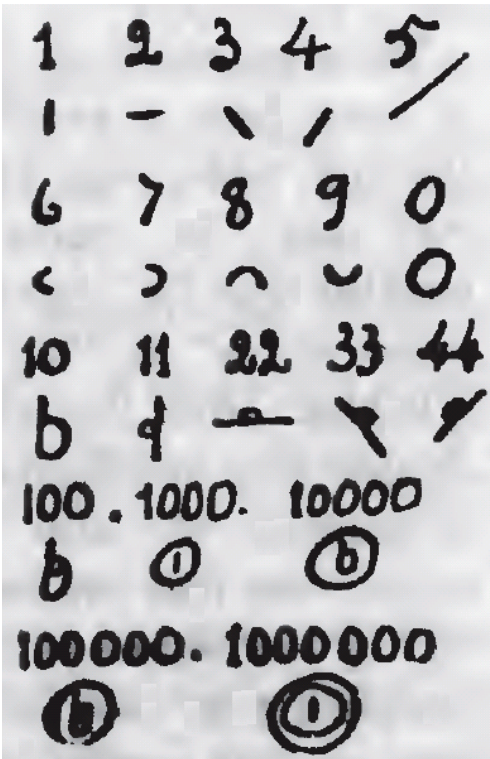 1 2 3 4 5
6 7 8 9 0
0
10 11 22 33 44
b
100. 1000. 10000
b 1 b
100000. 1000000
b 1